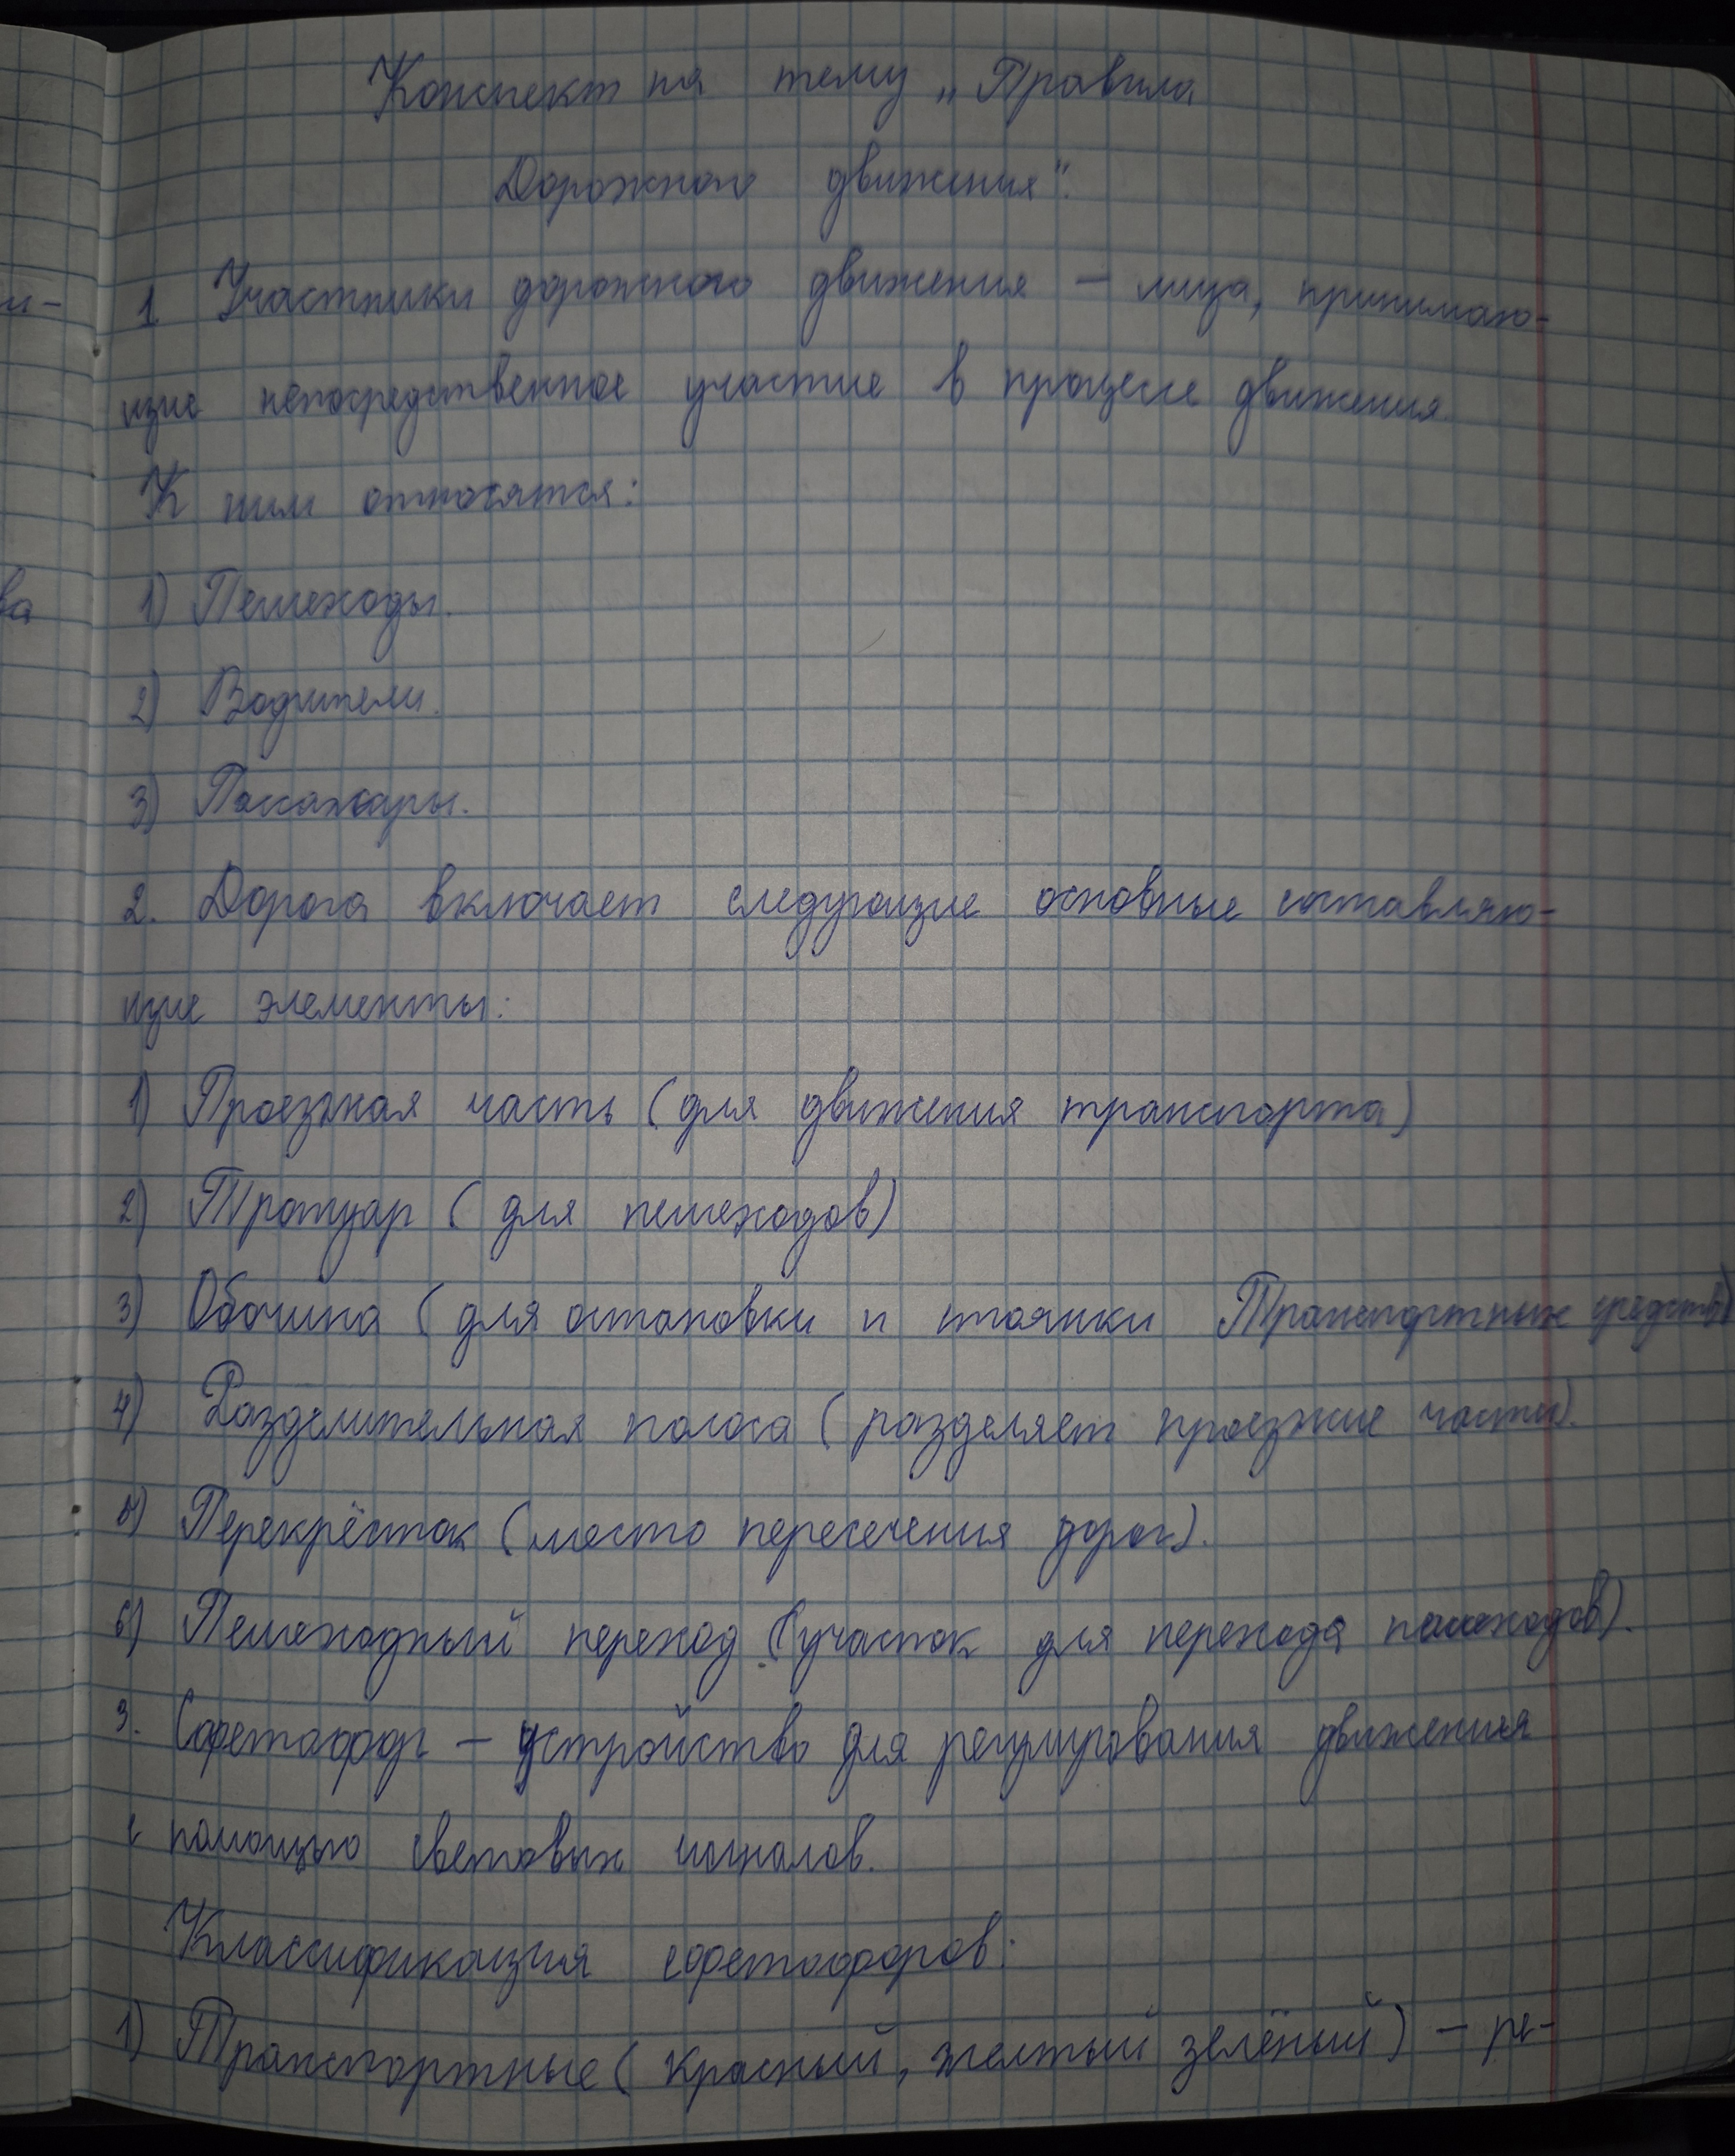 Конспект на тему „Правила
Дорожного движения".
и-
1 Участники дорожного движения – лица, принимаю-
щие непосредственное участие в процессе движения.
К ним относятся:
ва
1) Пешеходы.
2) Водители.
3) Пассажиры.
2. Дорога включает следующие основные составляю-
щие элементы:
1) Проезжая часть (для движения транспорта)
2) Тротуар ( для пешеходов)
3) Обочина ( для остановки и стоянки Транспортных средств)
4) Разделительная полоса ( разделяет проезжие части).
5) Перекрёсток (место пересечения дорог).
6) Пешеходный переход (участок для перехода пешеходов).
3. Сфетофор – устройство для регулирования движения
с помощью световых сигналов.
Классификация сфетофоров:
1) Транспортные ( красный, желтый зелёный) – ре-